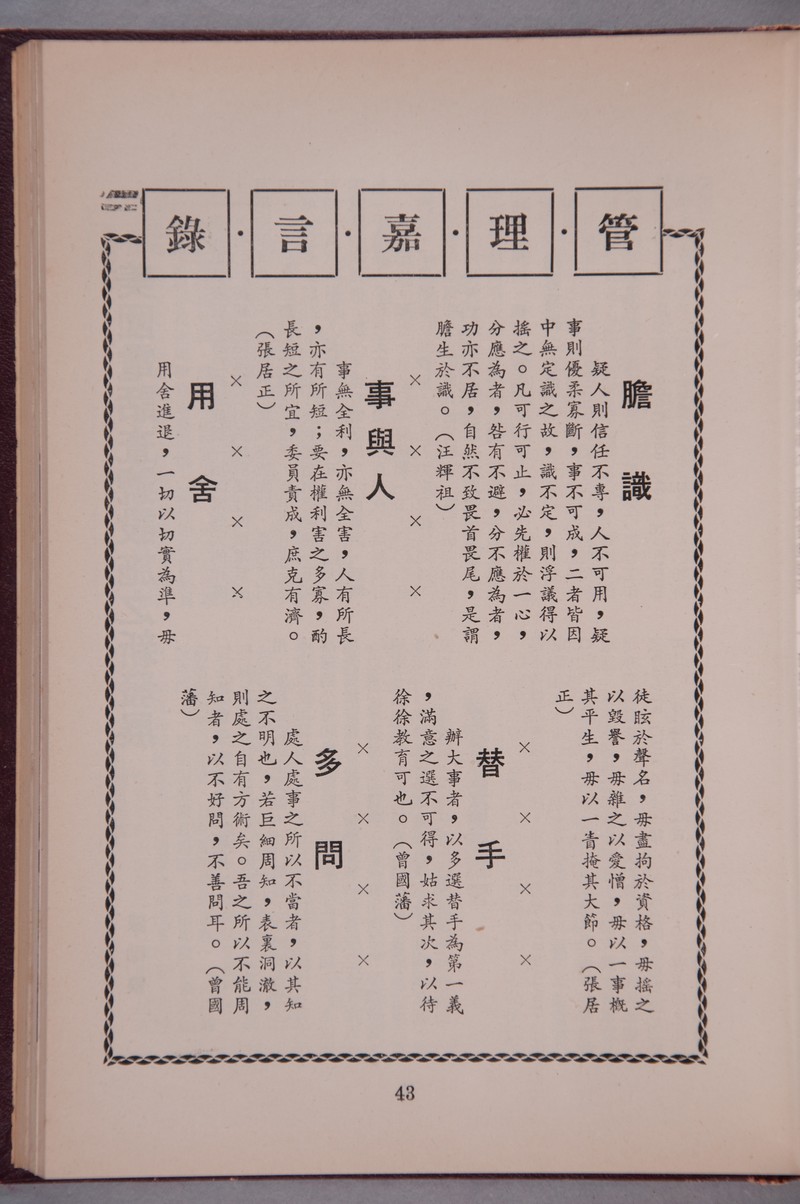 管·理·嘉·言·錄
膽識
疑人則信任不專，人不可用，疑
事則優柔寡斷，事不可成，二者皆因
中無定識之故，識不定，則浮議得以
搖之。凡可行可止，必先權於一心，
分應為者，咎有不避，分不應為者，
功亦不居，自然不致畏首畏尾，是謂
膽生於識。（汪輝祖）
× × × ×
事與人
事無全利，亦無全害，人有所長
，亦有所短；要在權利害之多寡，酌
長短之所宜，委員責成，庶克有濟。
（張居正）
× × × ×
用舍
用舍進退，一切以切實為準，毋
徒眩於聲名，毋盡拘於資格，毋搖之
以毀譽，毋雜之以愛憎，毋以一事概
其平生，毋以一眚掩其大節。（張居
正）
× × × ×
替手
辦大事者，以多選替手為第一義
，滿意之選不可得，姑求其次，以待
徐徐教育可也。（曾國藩）
× × × ×
多問
處人處事之所以不當者，以其知
之不明也，若巨細周知，表裏洞澈，
則處之自有方術矣。吾之所以不能周
知者，以不好問，不善問耳。（曾國
藩）
43